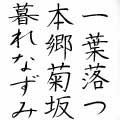 一葉落つ
本郷菊坂
暮れなずみ